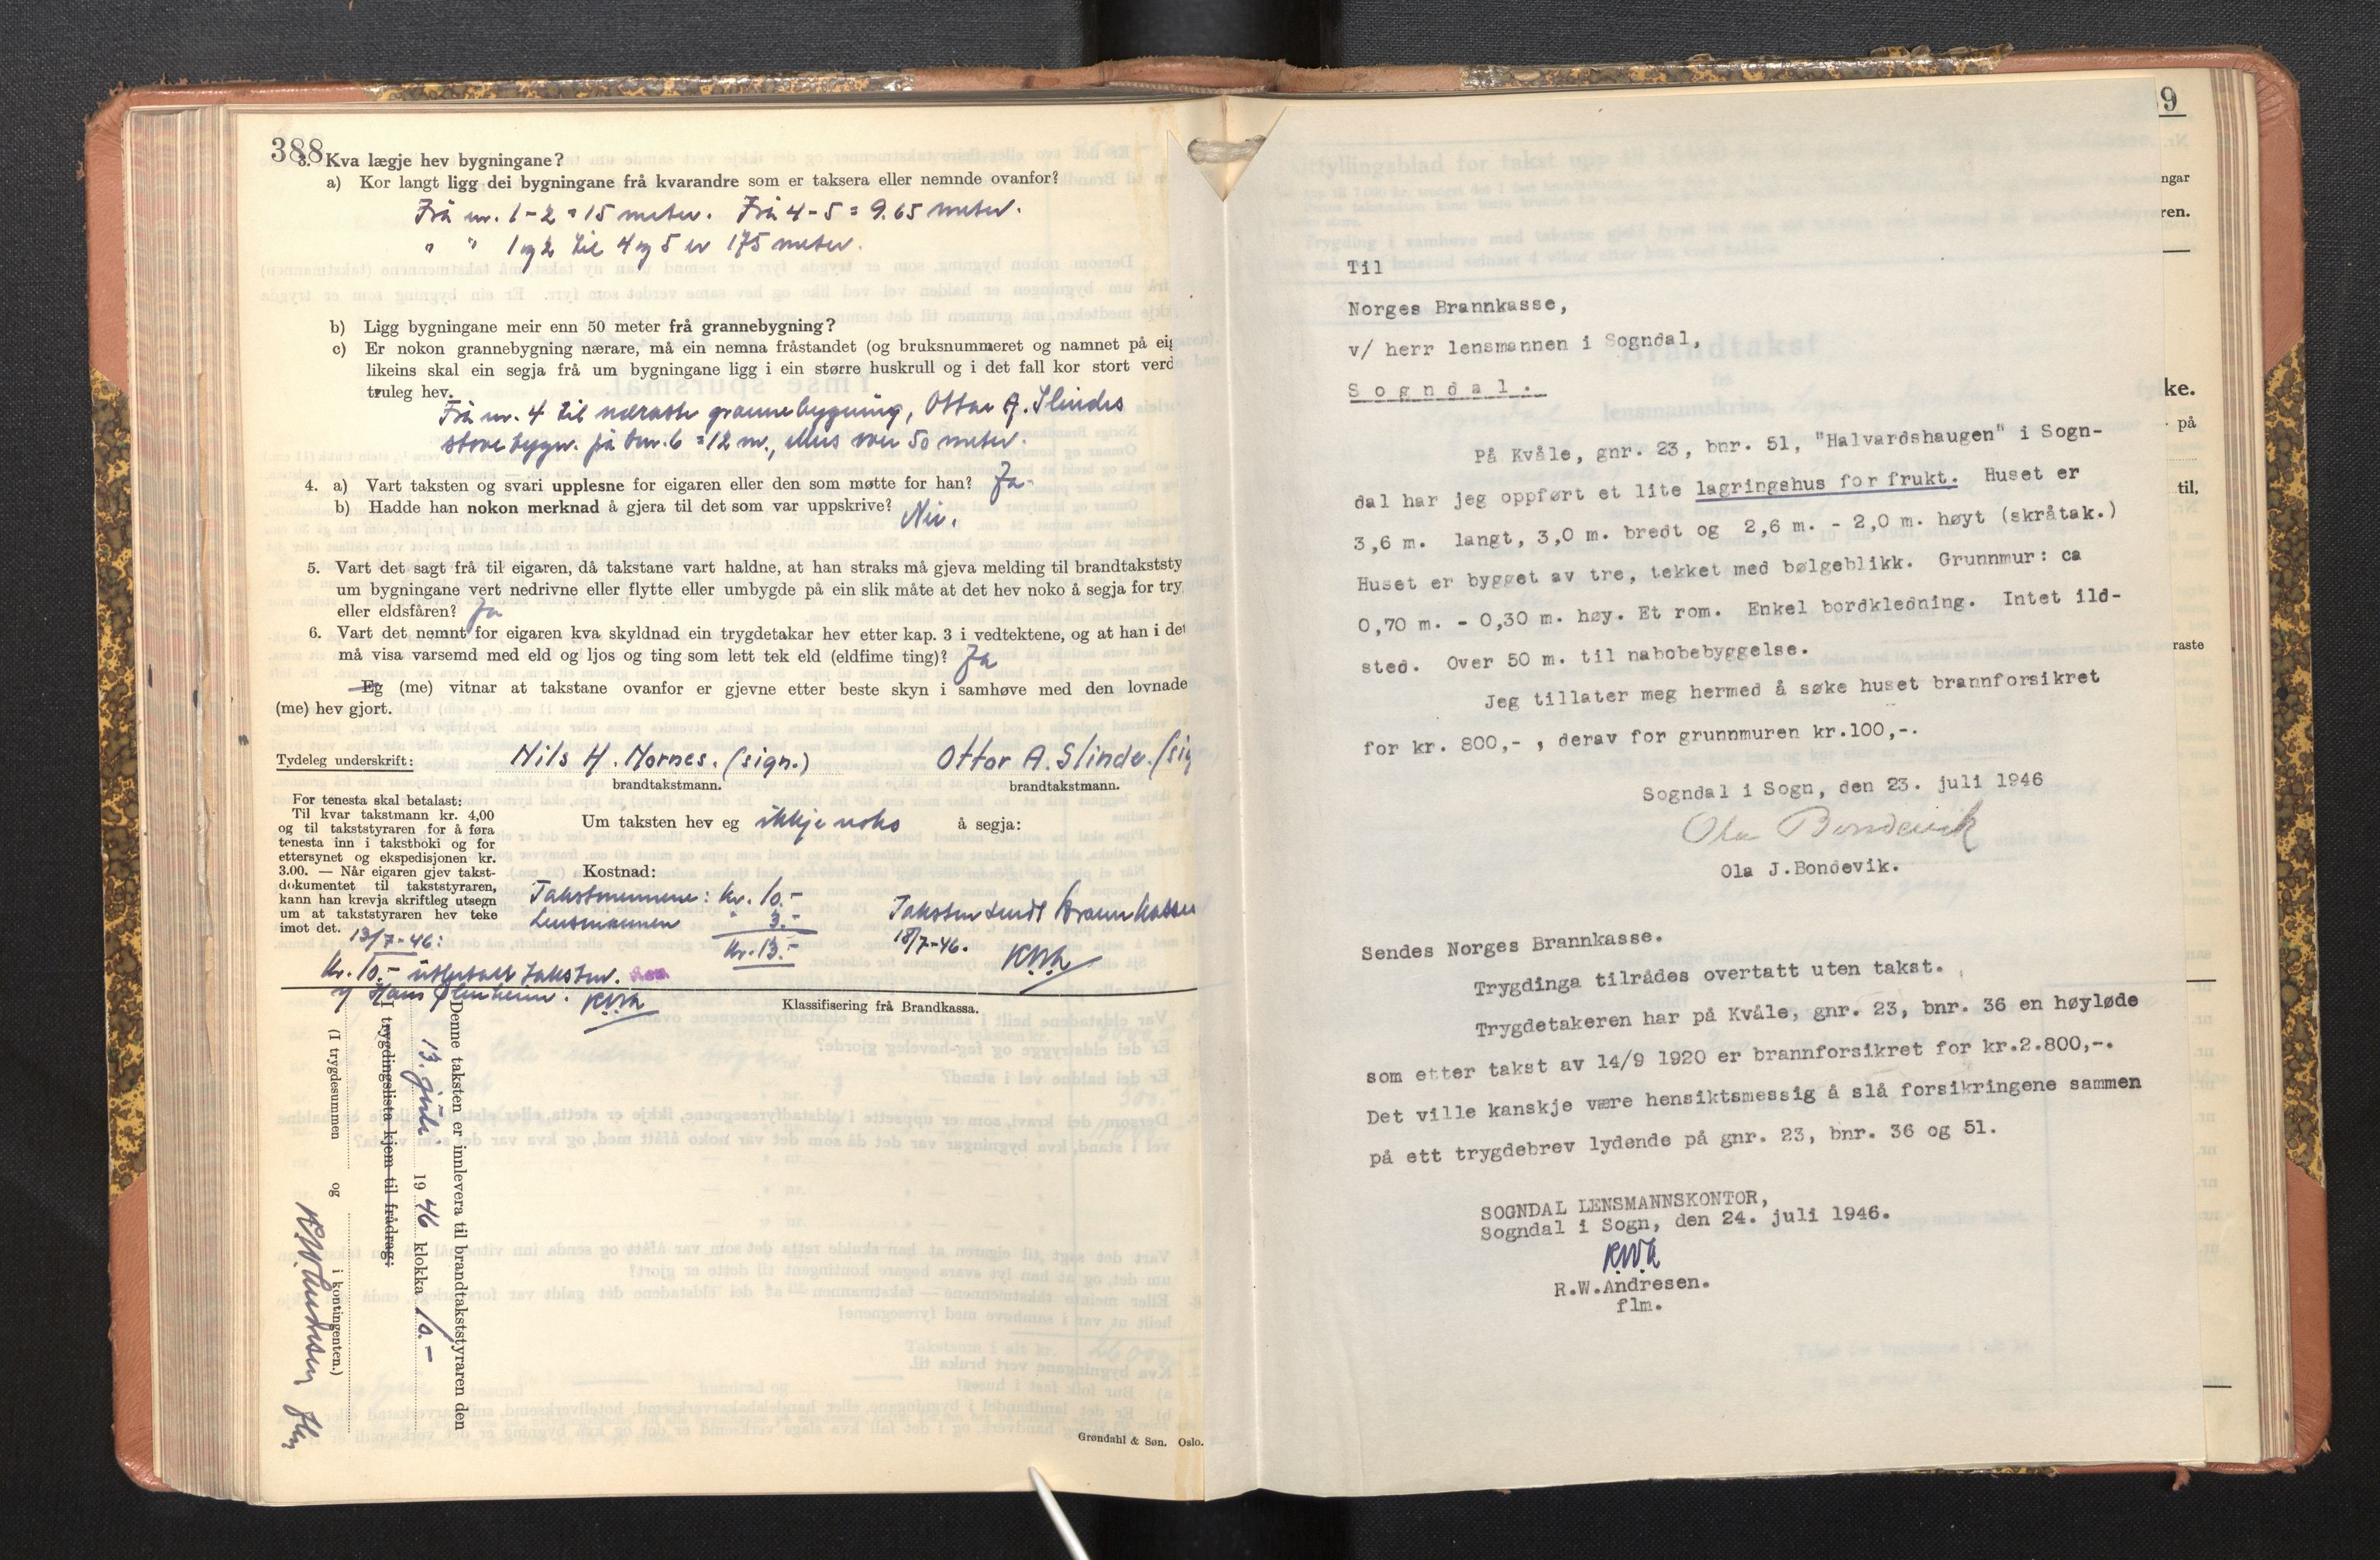 388
3. Kva lægje hev bygningane?
a) Kor langt ligg dei bygningane frå kvarandre som er taksera eller nemnde ovanfor?
Frå nr. 1-2 = 15 meter. Frå 4-5 = 9.65 meter.
" " 1 og 2 til 4 og 5 er 175 meter.
b) Ligg bygningane meir enn 50 meter frå grannebygning?
c) Er nokon grannebygning nærare, må ein nemna fråstandet (og bruksnummeret og namnet på eig
likeins skal ein segja frå um bygningane ligg i ein større huskrull og i det fall kor stort verd
truleg hev.
Frå nr. 4 til næraste grannebygning, Ottar A. Slindes
stovebygn. på bnr. 6 = 12 m., elles over 50 meter.
4. a) Vart taksten og svari upplesne for eigaren eller den som møtte for han? Ja
b) Hadde han nokon merknad å gjera til det som var uppskrive? Nei.
5. Vart det sagt frå til eigaren, då takstane vart haldne, at han straks må gjeva melding til brandtakststy
um bygningane vert nedrivne eller flytte eller umbygde på ein slik måte at det hev noko å segja for try
eller eldsfåren? Ja
6. Vart det nemnt for eigaren kva skyldnad ein trygdetakar hev etter kap. 3 i vedtektene, og at han i det
må visa varsemd med eld og ljos og ting som lett tek eld (eldfime ting)? Ja
Eg (me) vitnar at takstane ovanfor er gjevne etter beste skyn i samhøve med den lovnade
(me) hev gjort.
Tydeleg underskrift: Nils H. Nornes. (sign.) Ottar A. Slinde. (sig
brandtakstmann. brandtakstmann.
For tenesta skal betalast:
Til kvar takstmann kr. 4,00
og til takststyraren for å føra
tenesta inn i takstboki og for
ettersynet og ekspedisjonen kr.
3.00. — Når eigaren gjev takst-
dokumentet til takststyraren,
kann han krevja skriftleg utsegn
um at takststyraren hev teke
imot det.
Um taksten hev eg ikkje noko å segja:
Kostnad:
Takstmennene: kr. 10.-
Lensmannen " 3.-
Kr. 13.-
Taksten sendt Brannkassen
18/7-46.
RWA
13/7-46:
Kr. 10.- utbetalt takstm.
v/ Hans
RWA
Klassifisering frå Brandkassa.
Denne taksten er innlevera til brandtakststyraren den
13. juli 1946 klokka 10.-
I trygdingslista kjem til frådrag:
(I trygdesummen og i kontingenten.)
R.W. Andresen flm
Grøndahl & Søn. Oslo.
9
ngar
ren.
ke.
på
til,
raste
Til
Norges Brannkasse,
v/ herr lensmannen i Sogndal,
Sogndal.
På Kvåle, gnr. 23, bnr. 51, "Halvardshaugen" i Sogn-
dal har jeg oppført et lite lagringshus for frukt. Huset er
3,6 m. langt, 3,0 m. bredt og 2,6 m. - 2,0 m. høyt (skråtak.)
Huset er bygget av tre, tekket med bølgeblikk. Grunnmur: ca
0,70 m. - 0,30 m. høy. Et rom. Enkel bordkledning. Intet ild-
sted. Over 50 m. til nabobebyggelse.
Jeg tillater meg hermed å søke huset brannforsikret
for kr. 800,- , derav for grunnmuren kr.100,-.
Sogndal i Sogn, den 23. juli 1946
Ola Bondevik
Ola J.Bondevik.
Sendes Norges Brannkasse.
Trygdinga tilrådes overtatt uten takst.
Trygdetakeren har på Kvåle, gnr. 23, bnr. 36 en høyløde
som etter takst av 14/9 1920 er brannforsikret for kr.2.800,-.
Det ville kanskje være hensiktsmessig å slå forsikringene sammen
på ett trygdebrev lydende på gnr. 23, bnr. 36 og 51.
SOGNDAL LENSMANNSKONTOR,
Sogndal i Sogn, den 24. juli 1946.
RWA
R.W.Andresen.
flm.